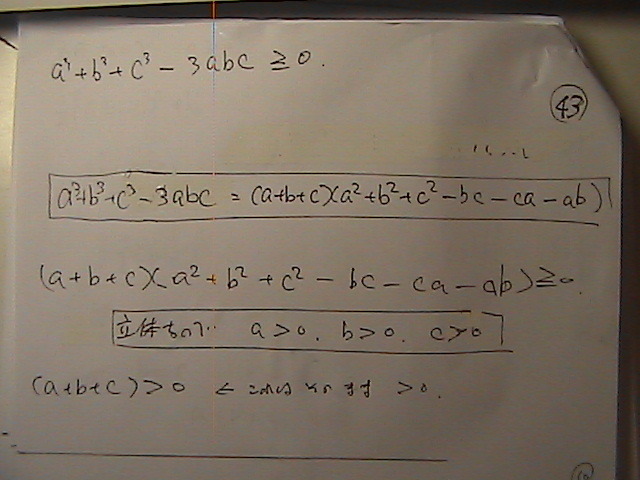 a³+b³+c³-3abc≧0.
43
a³+b³+c³-3abc=(a+b+c)(a²+b²+c²-bc-ca-ab)
(a+b+c)(a²+b²+c²-bc-ca-ab)≧0.
立体なので a>0. b>0. c>0
(a+b+c)>0 ← >0.